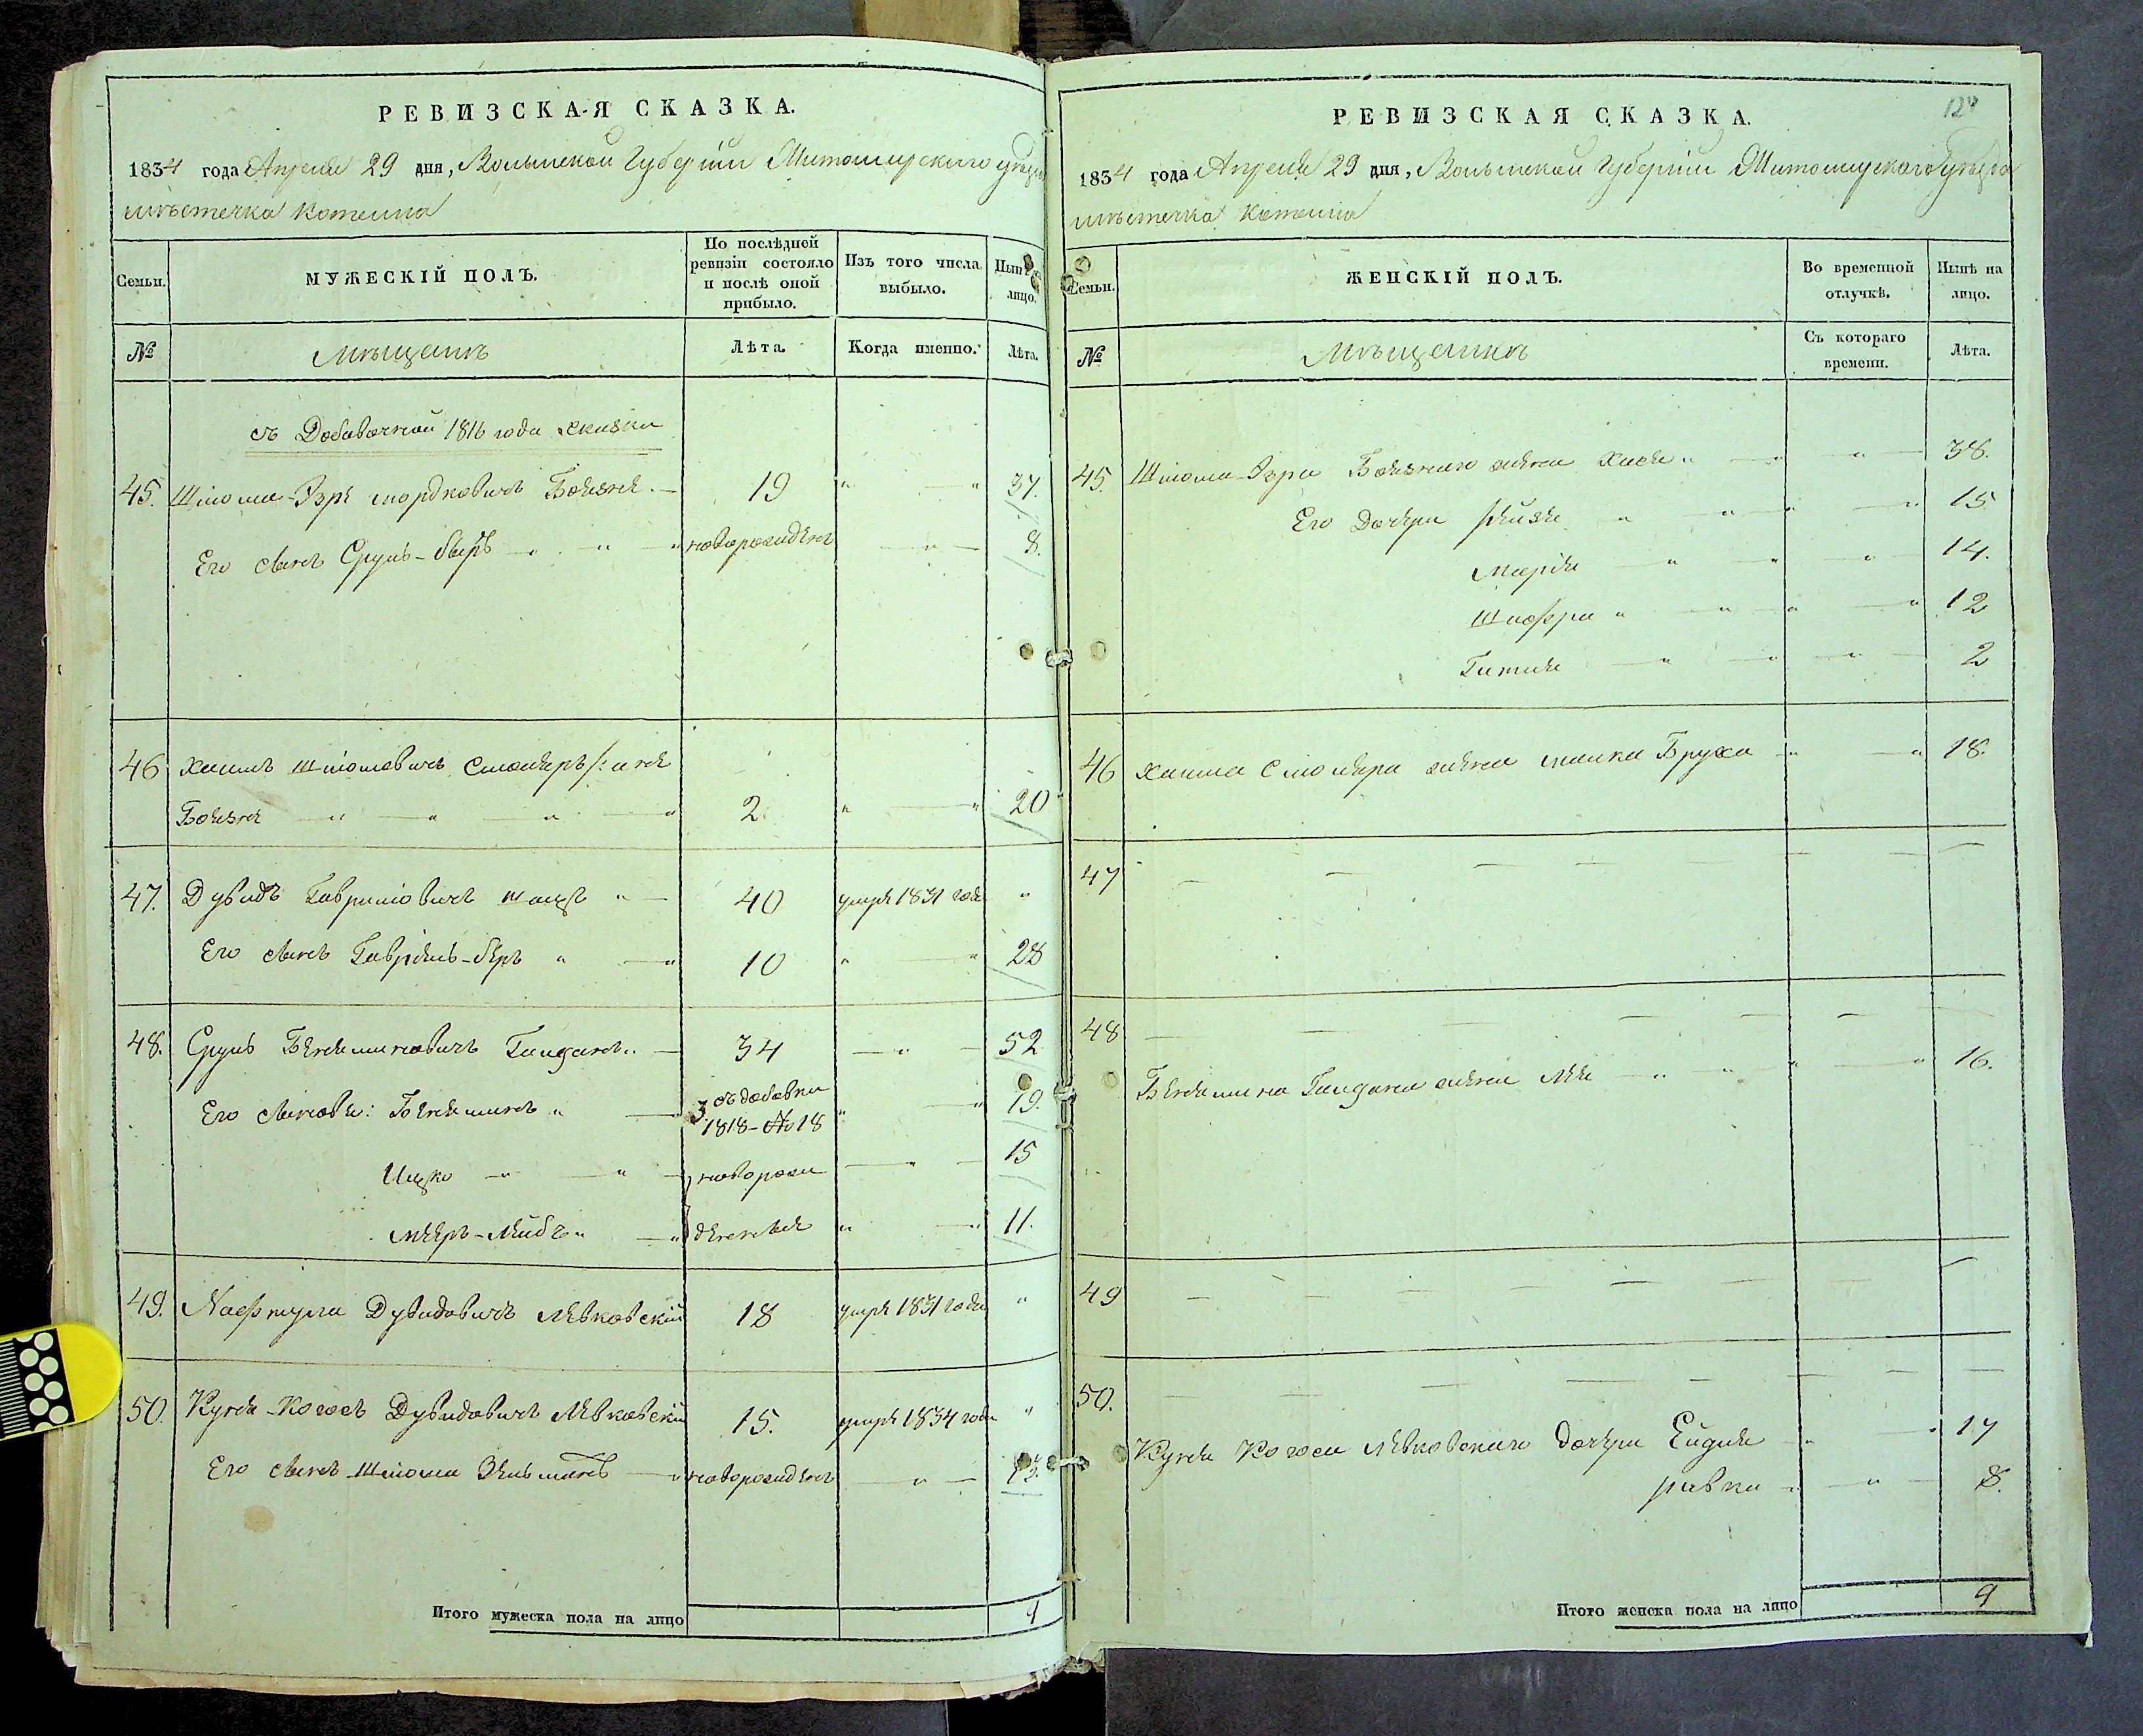 РЕВИЗСКАЯ СКАЗКА.
1834 года Апреля 29 дня, Волынской Губерніи Житомирского уезда
мѣстечка Котелна
Семьи.
МУЖЕСКІЙ ПОЛЪ.
По послѣдней ревизіи состояло и послѣ оной прибыло.
Изъ того числа выбыло.
Нынѣ на лицо.
№
Мѣщанъ
Лѣта.
Когда именно.
Лѣта.
съ Добавочной 1816 года сказки
45. Шлома-Эзра Мордковичъ 19 " " 37.
Его сынъ Сруль-беръ " " " новорожденъ " 8.
46 Хаимъ Шлiомовичъ
" " " " 2 " " 20
47. Дувидъ Гавриловичъ " 40 умре 1831 года "
Его сынъ Гавріель-беръ " " 10 " " 28
48. Сруль Беняминовичъ " 34 " 52
Его сыновья: Беняминъ " " 3 съ добавки 1818-№18 " " 19.
Ицко " " новорож " 15
Мееръ-Лейбъ " " денные " " 11.
49. Нафтула Дувидовичъ Левковскій 18 умре 1831 года "
50. Дувидовичъ Левковскій 15. умре 1834 года "
Его сынъ Шлiома Зельманъ " новорожденъ "
Итого мужеска пола на лицо 9
РЕВИЗСКАЯ СКАЗКА.
1834 года Апреля 29 дня, Волынской Губерніи Житомирского уезда
мѣстечка Котелна
Семьи.
ЖЕНСКІЙ ПОЛЪ.
Во временной отлучкѣ.
Нынѣ на лицо.
№
Мѣщанкъ
Съ котораго времени.
Лѣта.
45. Шлома-Эзры жена Хася " " " 38.
Его дочери Рейзя " " " " 15
Маріа " " " 14.
Шифра " " " " 12
Гитля " " " 2
46 Хаима жена Бруха " " 18.
47
48
Бенямина жена Лея " " " " 16.
49
50.
Левковскаго дочери " " 17
Ривка " " 8.
Итого женска пола на лицо 9